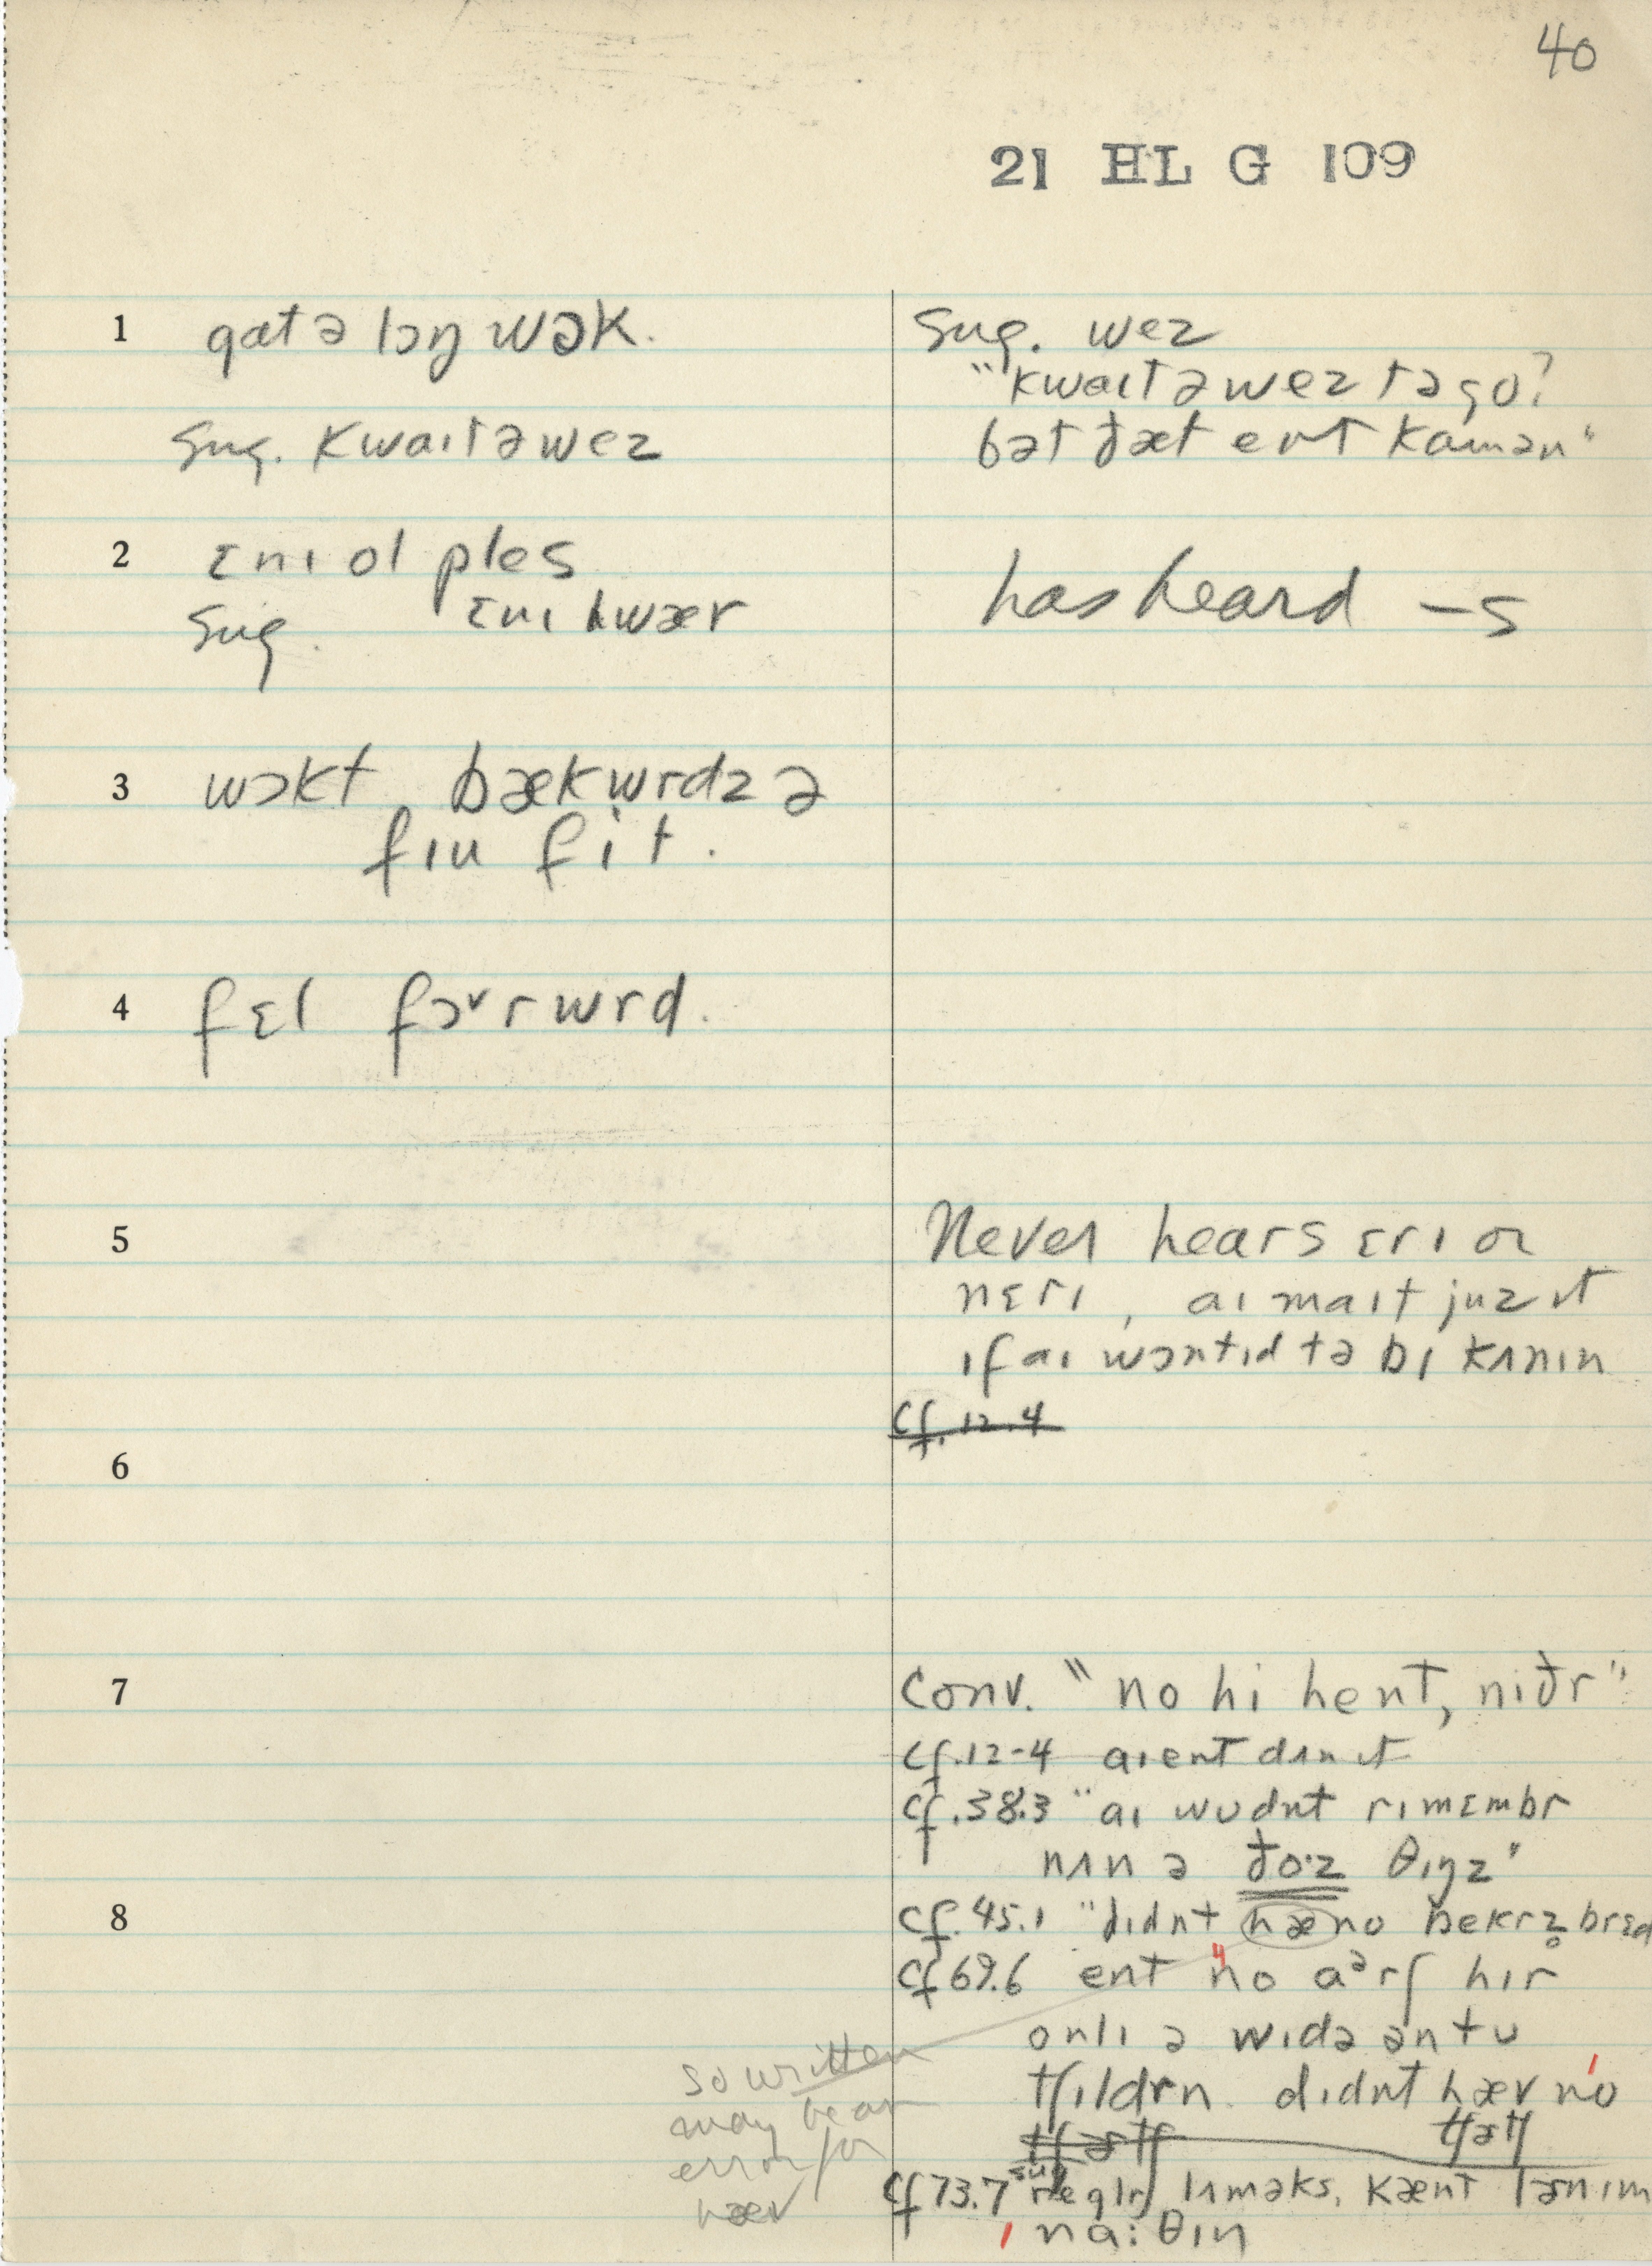 40
21 HL G 109
1 gɑt ə lɔŋ wɔk.
sug. kwaɪt ə wez
sug. wez
"kwaɪt ə wez tə go?
bət ðæt ent kɑmən"
2 ɛnɪ ol ples
sug. ɛnɪ hwær
has heard -s
3 wɔkt bækwrdz ə
fɪu fit.
4 fɛl fɔᵛrwrd.
5
Never hears ɛrɪ or
nɛrɪ, aɪ maɪt juz ɪt
ɪf aɪ wɔntɪd tə bɪ kʌnɪn
cf. 12.4
6
7
Conv. "no hi hent, niðr"
cf. 12-4 aɪ ent dʌn ɪt
cf. 38.3 "aɪ wudnt rɪmɛmbr
nʌn ə ðo·z θɪŋz"
8
cf. 45.1 "dɪdnt hæ no bekrz̥ brɛd
cf 69.6 ent no aᵊrʃ hɪr
onlɪ ə wɪdə ən tu
tʃɪldrn. dɪdnt hæv no
tʃɜtʃ
cf 73.7 sug reglr lʌməks, kænt lɜn ɪm
na:θɪŋ
so written
may be an
error for
hæv